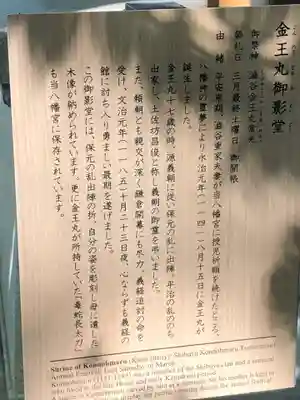 金王丸御影堂
御祭神 澁谷金王丸常光
御例祭 三月最終土曜日 御開帳
由緒 平安末期、澁谷重家夫妻が当八幡宮に授児祈願を続けたところ、
八幡神の霊夢により永治元年(一一四一)八月十五日に金王丸が
誕生しました。
金王丸十七歳の時、源義朝に従い保元の乱に出陣。平治の乱ののち
出家し、土佐坊昌俊と称し義朝の御霊を弔いました。
また、頼朝とも親交が深く鎌倉開幕にも尽力。義経追討の命を
受け、文治元年(一一八五)十月二十三日夜、心ならずも義経の
館に討ち入り勇ましい最期を遂げました。
この御影堂には、保元の乱出陣の折、自分の姿を彫刻し母に遺した
木像が納められています。更に金王丸が所持していた「毒蛇長太刀」
も当八幡宮に保存されています。
Shrine of Konnohmaru
Annual Festival: Last Saturday of March